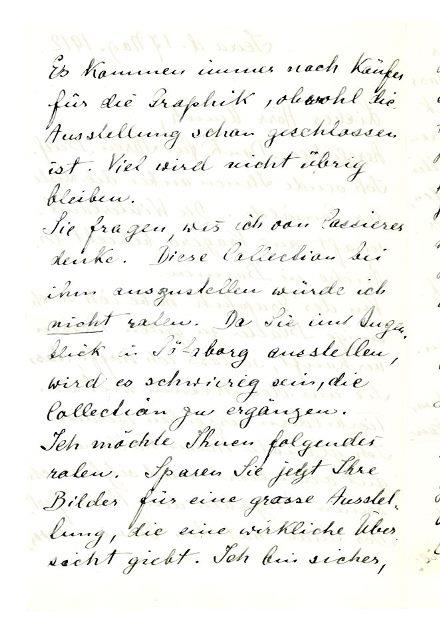 Es kommen immer noch Käufer
für die Graphik, obwohl die
Ausstellung schon geschlossen
ist. Viel wird nicht übrig
bleiben.
Sie fragen, was ich von Cassierer
denke. Diese Collection bei
ihm auszustellen würde ich
nicht raten. Da Sie im Augen-
blick in ausstellen,
wird es schwierig sein, die
Collection zu ergänzen.
Ich möchte Ihnen folgendes
raten. Sparen Sie jetzt Ihre
Bilder für eine grosse Ausstel-
lung, die eine wirkliche Über
sicht giebt. Ich bin sicher,